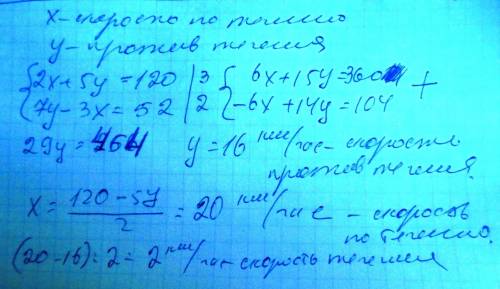 x - скорость по течению
y - против течения
{2x+5y=120 |3 {6x+15y=360 +
{7y-3x=52 |2 {-6x+14y=104
29y=464 y=16 км/час - скорость
против течения.
x = (120-5y)/2 = 20 км/час - скорость
по течению.
(20-16):2=2 км/час - скорость течения